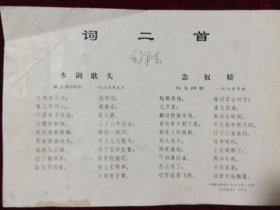 词二首
毛泽东
水调歌头
重上井冈山 一九六五年五月
久有凌云志，
重上井冈山。
千里来寻故地，
旧貌变新颜。
到处莺歌燕舞，
更有潺潺流水，
高路入云端。
过了黄洋界，
险处不须看。
风雷动，
旌旗奋，
是人寰。
三十八年过去，
弹指一挥间。
可上九天揽月，
可下五洋捉鳖，
谈笑凯歌还。
世上无难事，
只要肯登攀。
念奴娇
鸟儿问答 一九六五年秋
鲲鹏展翅，
九万里，
翻动扶摇羊角。
背负青天朝下看，
都是人间城郭。
炮火连天，
弹痕遍地，
吓倒蓬间雀。
怎么得了，
哎呀我要飞跃。
借问君去何方，
雀儿答道：
有仙山琼阁。
不见前年秋月朗，
订了三家条约。
还有吃的，
土豆烧熟了，
再加牛肉。
不须放屁，
试看天地翻覆。